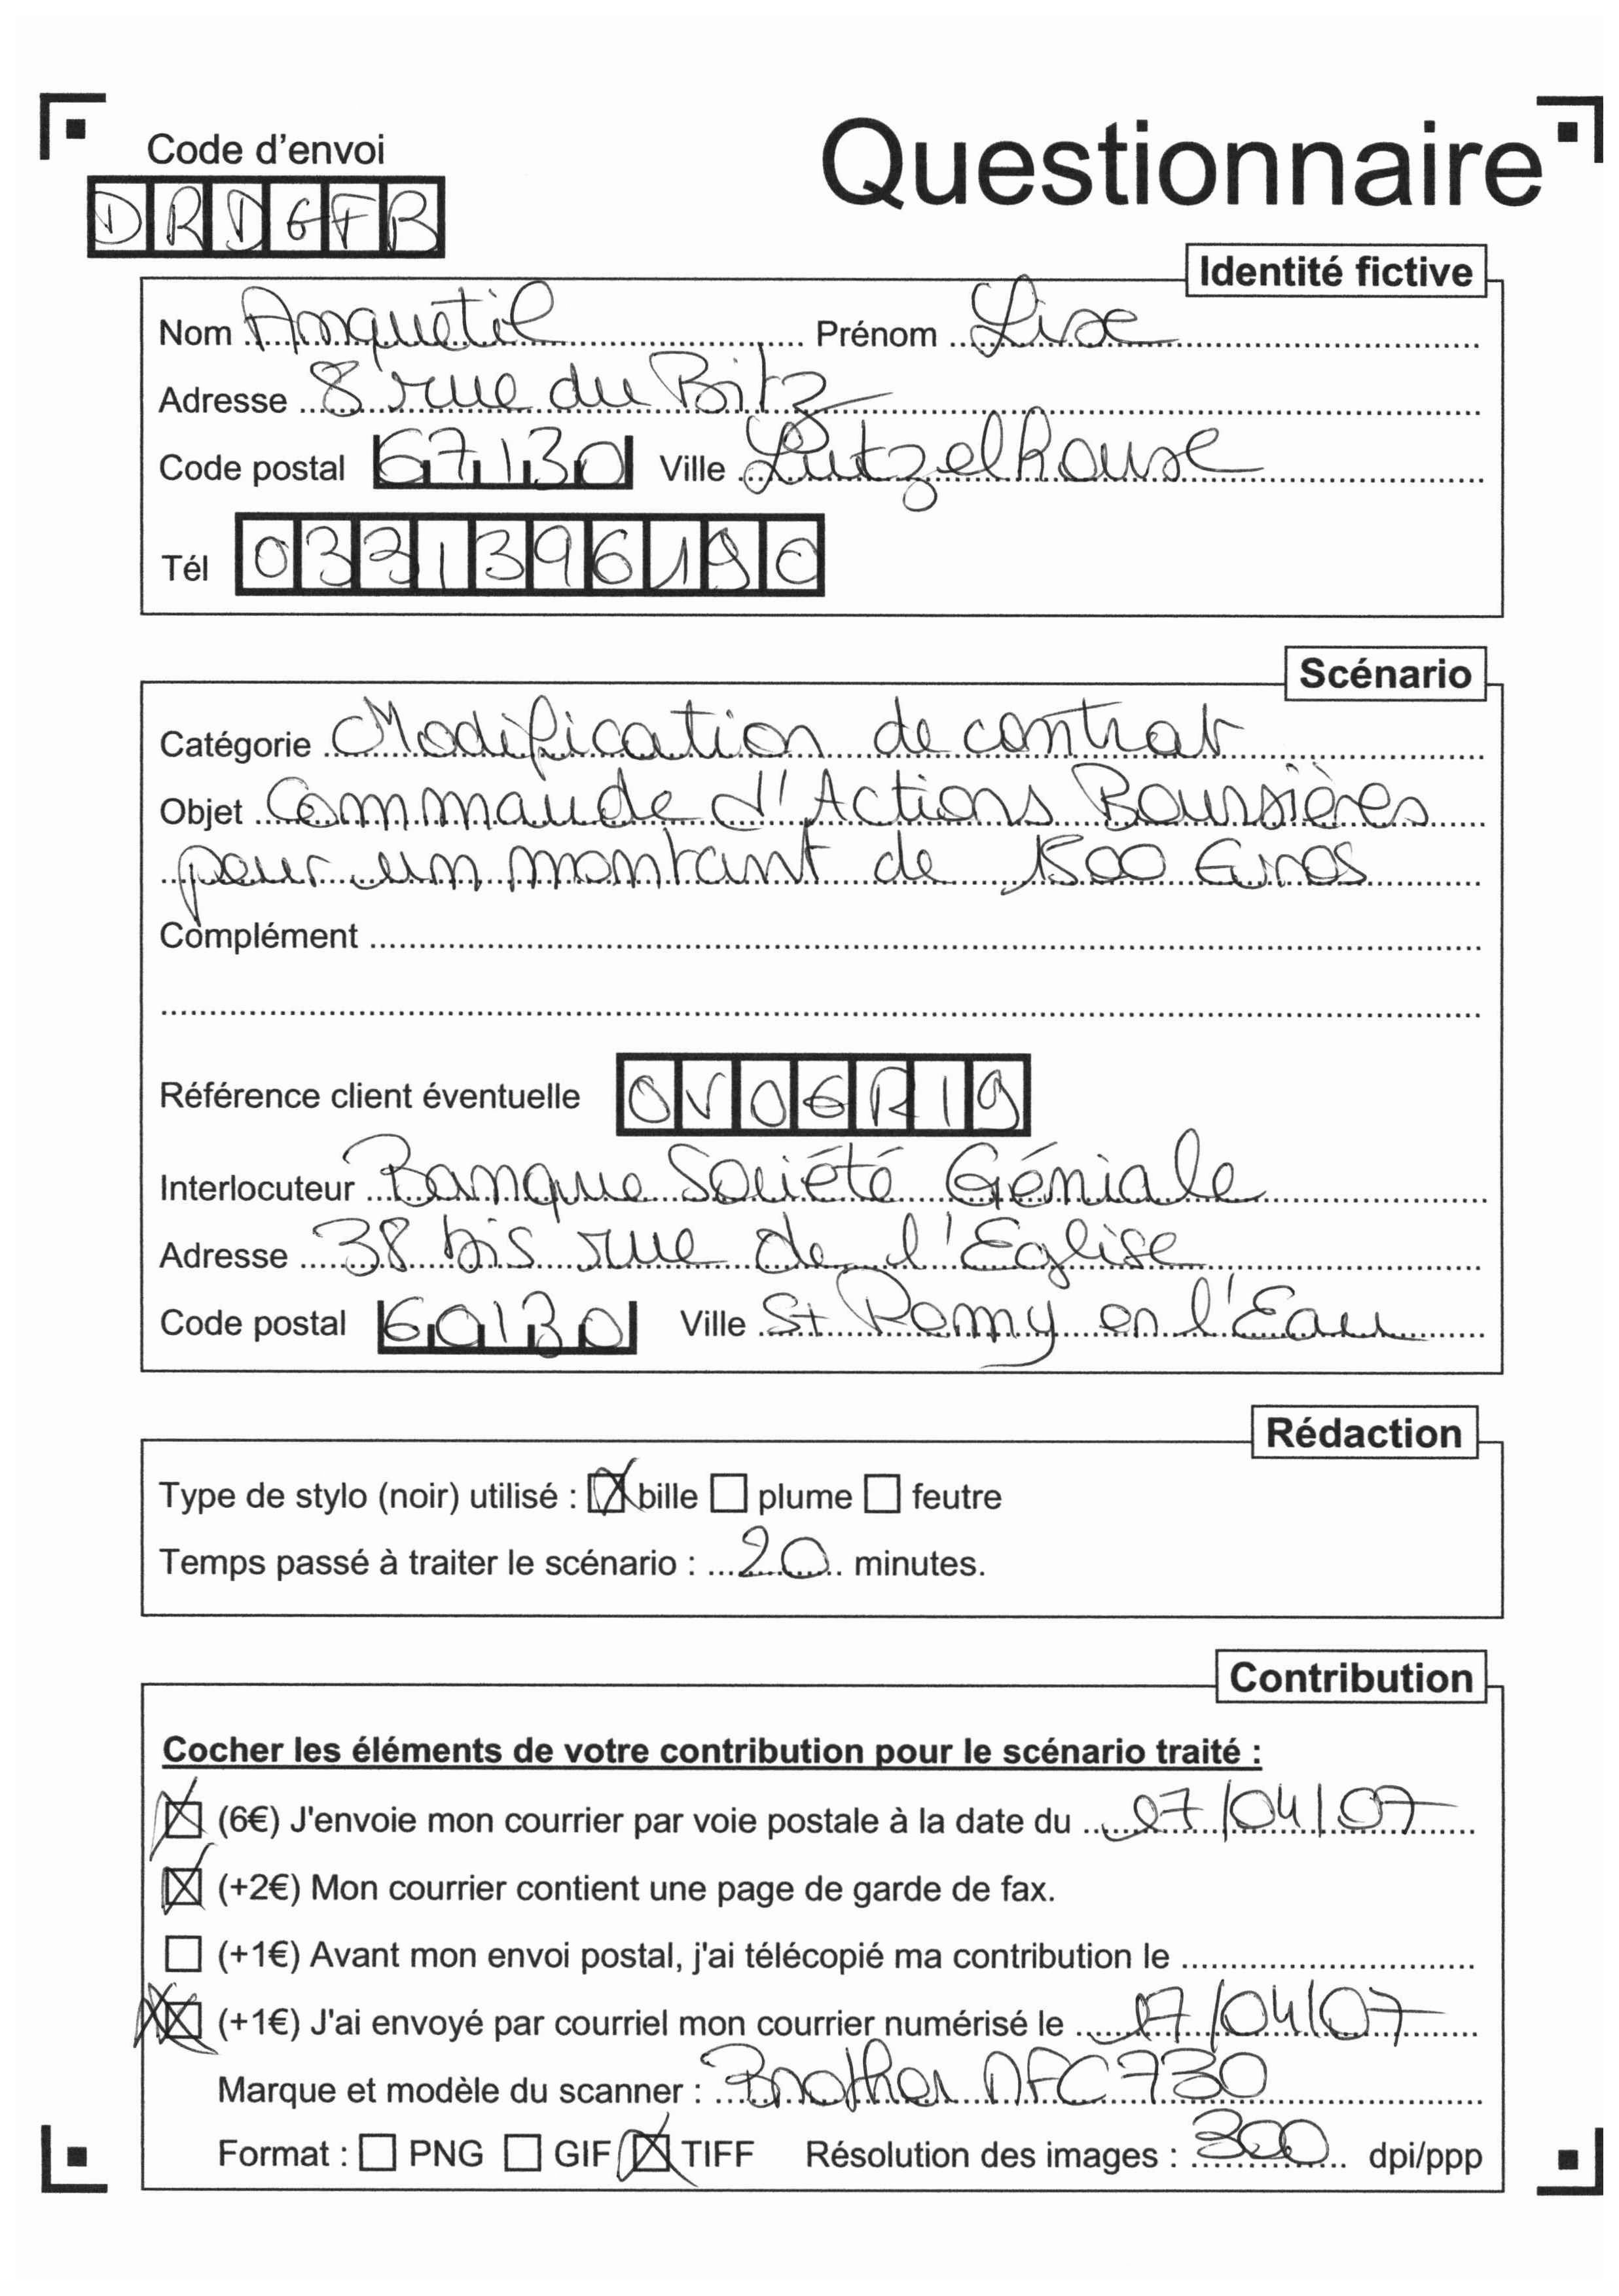 Code d'envoi
Questionnaire
DRDGFB
Identité fictive
Nom Anquetil Prénom Lise
Adresse 8 rue du Bitz
Code postal 67130 Ville Lutzelhouse
Tél 0331396190
Scénario
Catégorie Modification de contrat
Objet Commande d'Actions Boursières
pour un montant de 1500 Euros
Complément
Référence client éventuelle OVOGR19
Interlocuteur Banque Société Géniale
Adresse 38 bis rue de l'Eglise
Code postal 60130 Ville St Remy en l'Eau
Rédaction
Type de stylo (noir) utilisé : bille plume feutre
Temps passé à traiter le scénario : 20 minutes.
Contribution
Cocher les éléments de votre contribution pour le scénario traité :
(6€) J'envoie mon courrier par voie postale à la date du 17/04/07
(+2€) Mon courrier contient une page de garde de fax.
(+1€) Avant mon envoi postal, j'ai télécopié ma contribution le
(+1€) J'ai envoyé par courriel mon courrier numérisé le 17/04/07
Marque et modèle du scanner : Brother MFC 730
Format : PNG GIF TIFF Résolution des images : 300 dpi/ppp